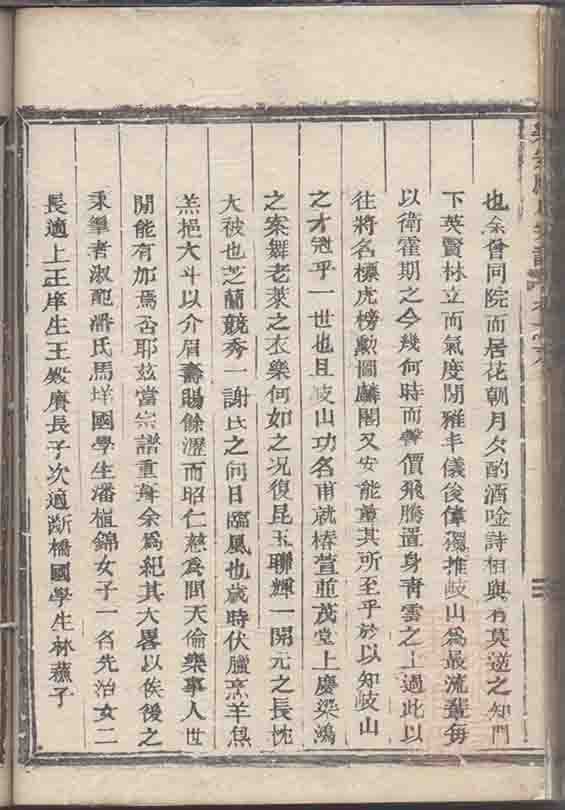 也余曾同院而居花朝月夕酌酒唫詩相與有莫逆之知門
下英賢林立而氣度閒雅丰儀俊偉獨推岐山爲最流輩每
以衛霍期之今幾何時而聲價飛騰置身靑雲之上過此以
往將名標虎榜勳圖麟閣又安能量其所至乎於以知岐山
之才冠乎一世也且岐山功名甫就椿萱並茂堂上慶梁鴻
之案舞老萊之衣樂何如之况復昆玉聯輝一開元之長枕
大被也芝蘭競秀一謝氏之何日臨風也歲時伏臘烹羊炰
羔挹大斗以介眉壽賜餘瀝而昭仁慈爲問天倫樂事人世
間能有加焉否耶玆當宗譜重脩余爲紀其大畧以俟後之
秉筆者淑配潘氏馬垟國學生潘植錦女子一名先治女二
長適上王庠生王殿賡長子次適斷橋國學生林蘓子